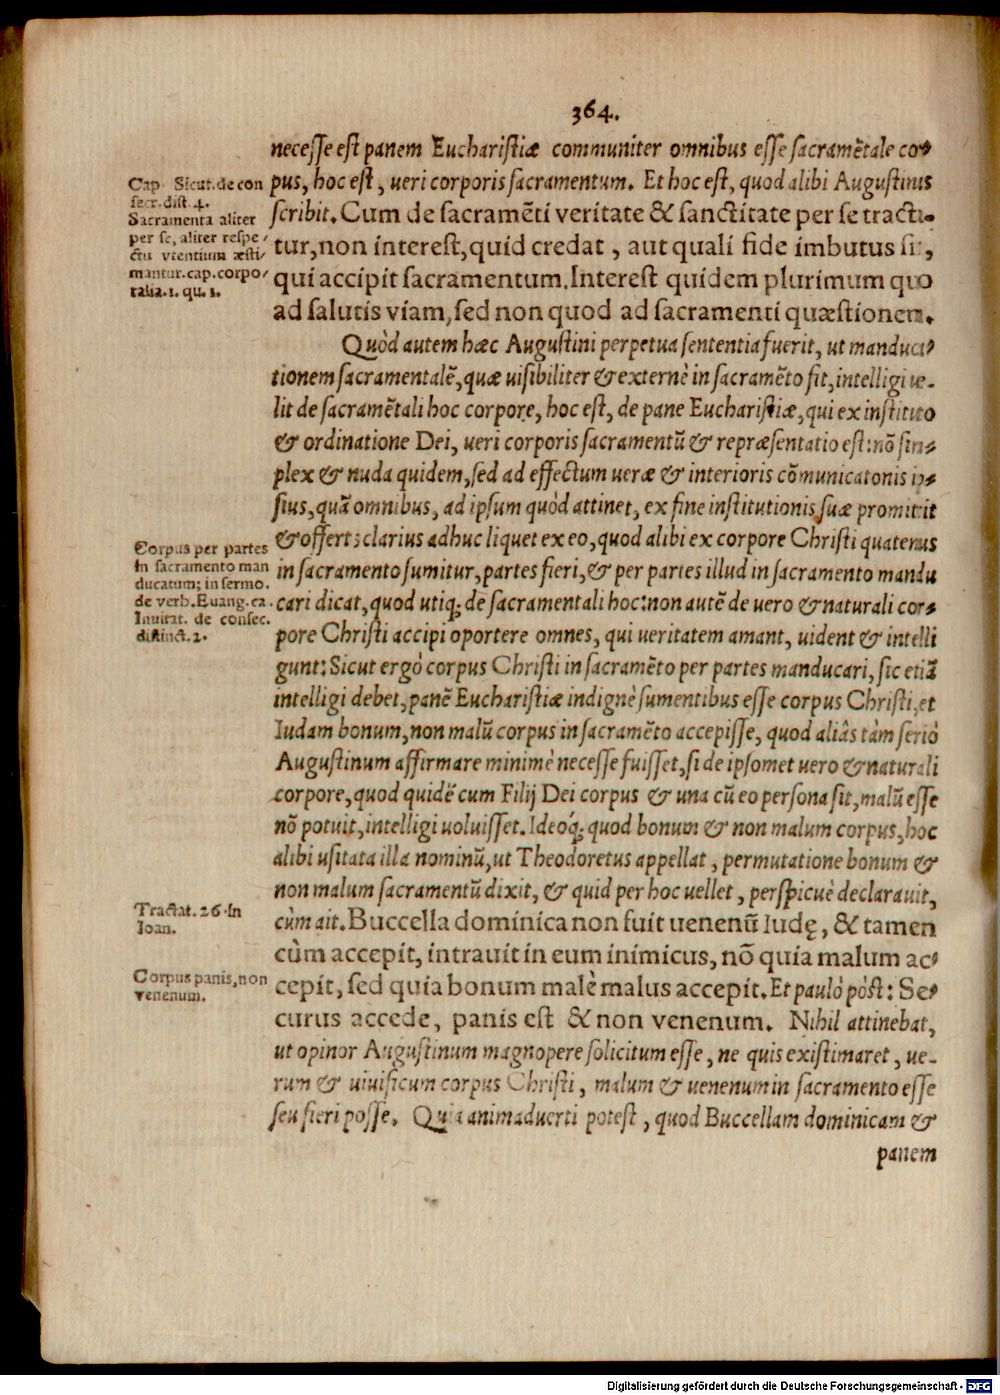 364.
necesse est panem Eucharistiæ communiter omnibus esse sacramẽtale cor-
pus, hoc est, ueri corporis sacramentum. Et hoc est, quod alibi Augustinus
scribit. Cum de sacramẽti veritate & sanctitate per se tracta-
tur, non interest, quid credat, aut quali fide imbutus sit,
qui accipit sacramentum. Interest quidem plurimum quo
ad salutis viam, sed non quod ad sacramenti quæstionem.
Quòd autem hæc Augustini perpetua sententia fuerit, ut manduca-
tionem sacramentalẽ, quæ uisibiliter & externè in sacramẽto fit, intelligi ue-
lit de sacramẽtali hoc corpore, hoc est, de pane Eucharistiæ, qui ex instituto
& ordinatione Dei, ueri corporis sacramentũ & repræsentatio est: nõ sim-
plex & nuda quidem, sed ad effectum ueræ & interioris cõmunicatonis ip-
sius, quã omnibus, ad ipsum quòd attinet, ex fine institutionis suæ promittit
& offert; clarius adhuc liquet ex eo, quod alibi ex corpore Christi quatenus
in sacramento sumitur, partes fieri, & per partes illud in sacramento mandu
cari dicat, quod utiq; de sacramentali hoc: non autẽ de uero & naturali cor-
pore Christi accipi oportere omnes, qui ueritatem amant, uident & intelli
gunt: Sicut ergò corpus Christi in sacramẽto per partes manducari, sic etiã
intelligi debet, panẽ Eucharistiæ indignè sumentibus esse corpus Christi, et
Iudam bonum, non malũ corpus in sacramẽto accepisse, quod aliâs tàm seriò
Augustinum affirmare minimè necesse fuisset, si de ipsomet uero & naturali
corpore, quod quidẽ cum Filij Dei corpus & una cũ eo persona sit, malũ esse
nõ potuit, intelligi uoluisset. Ideoq́; quod bonum & non malum corpus, hoc
alibi usitata illa nominũ, ut Theodoretus appellat, permutatione bonum &
non malum sacramentũ dixit, & quid per hoc uellet, perspicuè declarauit,
cùm ait. Buccella dominica non fuit uenenũ Iudę, & tamen
cùm accepit, intrauit in eum inimicus, nõ quia malum ac-
cepit, sed quia bonum malè malus accepit. Et paulò pòst: Se-
curus accede, panis est & non venenum. Nihil attinebat,
ut opinor Augustinum magnopere solicitum esse, ne quis existimaret, ue-
rum & uiuificum corpus Christi, malum & uenenum in sacramento esse
seu fieri posse. Quia animaduerti potest, quod Buccellam dominicam &
panem
Cap. Sicut. de con
secr. dist. 4.
Sacramenta aliter
per se, aliter respe-
ctu vtentium æsti-
mantur. cap. corpo-
ralia. 1. qu. 1.
Corpus per partes
in sacramento man
ducatum; in sermo.
de verb. Euang. ca.
Inuitat. de consec.
distinct. 2.
Tractat. 26. in
Ioan.
Corpus panis, non
venenum.
Digitalisierung gefördert durch die Deutsche Forschungsgemeinschaft - DFG